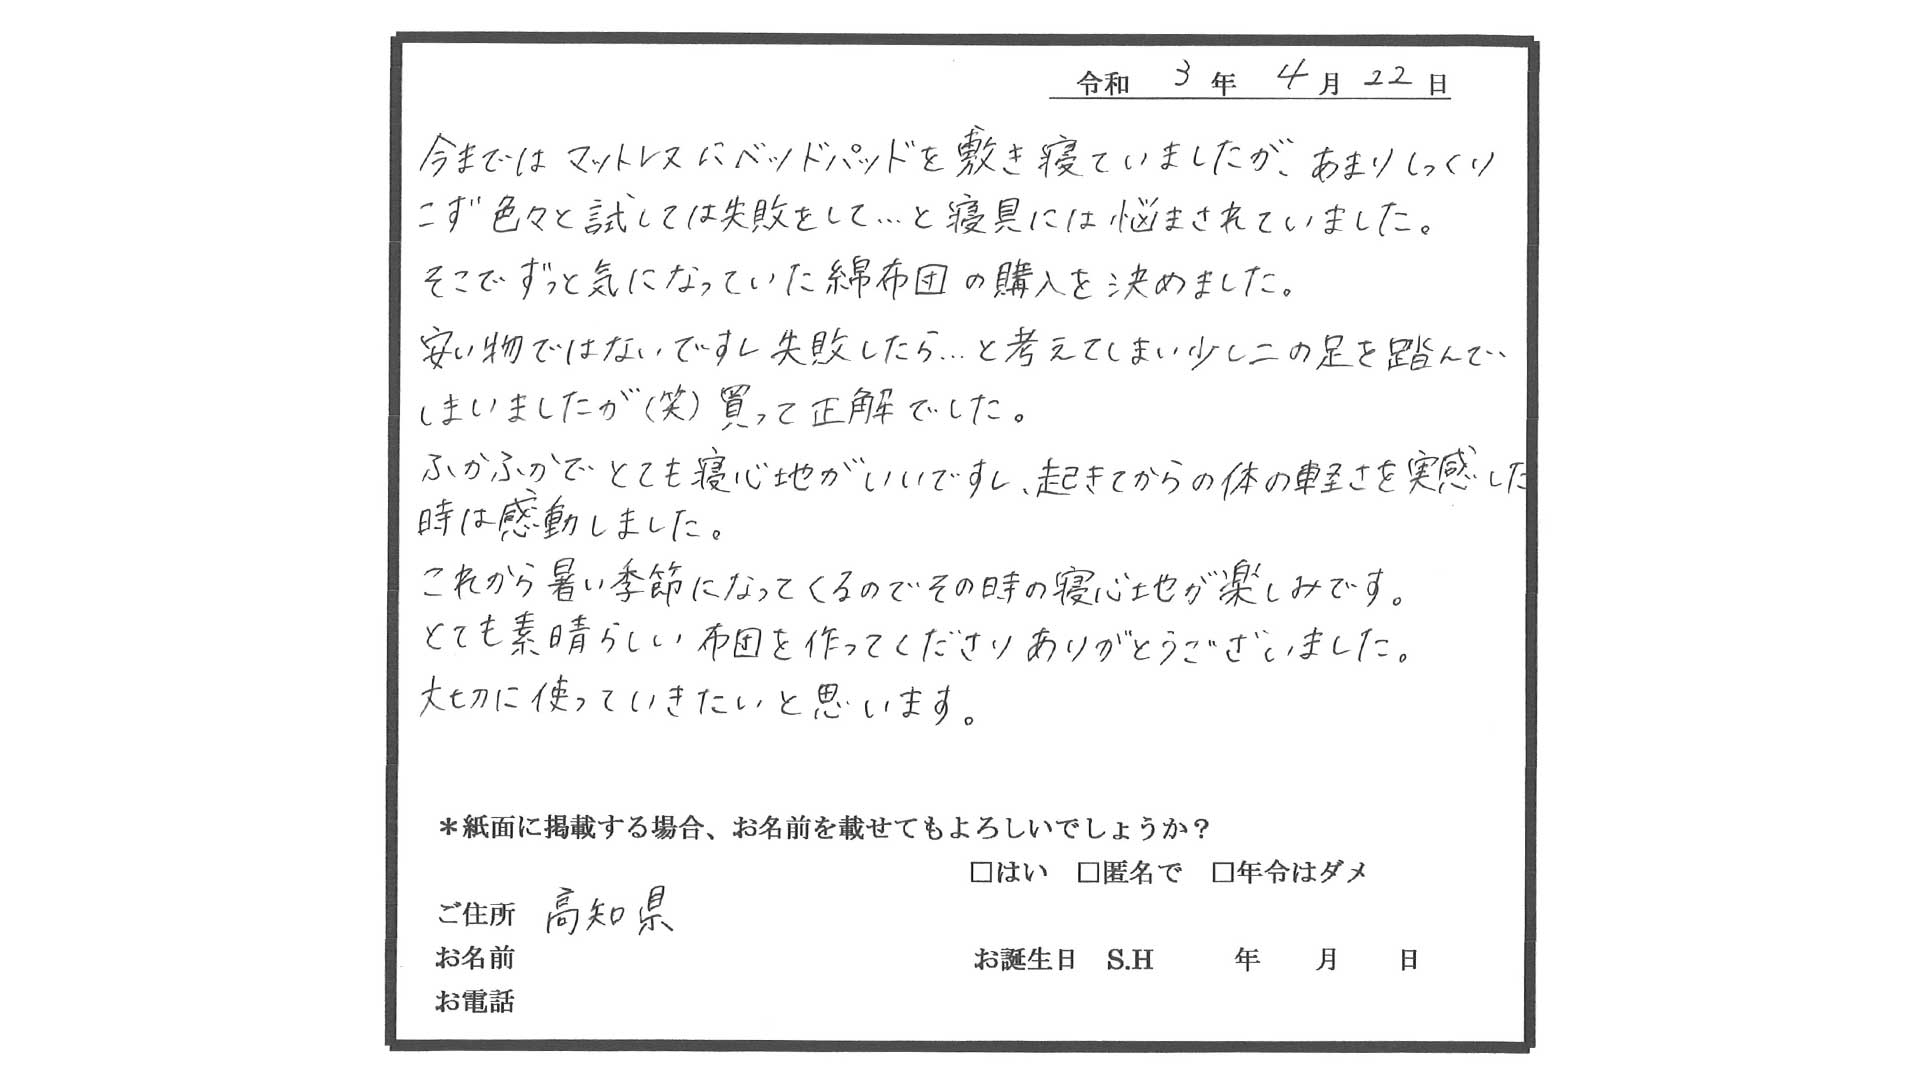 令和 3 年 4 月 22 日
今まではマットレスにベッドパッドを敷き寝ていましたが、あまりしっくり
こず色々と試しては失敗をして…と寝具には悩まされていました。
そこでずっと気になっていた綿布団の購入を決めました。
安い物ではないですし失敗したら…と考えてしまい少し二の足を踏んで
しまいましたが(笑)買って正解でした。
ふかふかでとても寝心地がいいですし、起きてからの体の軽さを実感した
時は感動しました。
これから暑い季節になってくるのでその時の寝心地が楽しみです。
とても素晴らしい布団を作ってくださりありがとうございました。
大切に使っていきたいと思います。
＊紙面に掲載する場合、お名前を載せてもよろしいでしょうか？
□はい □匿名で □年令はダメ
ご住所 高知県
お名前 お誕生日 S.H 年 月 日
お電話